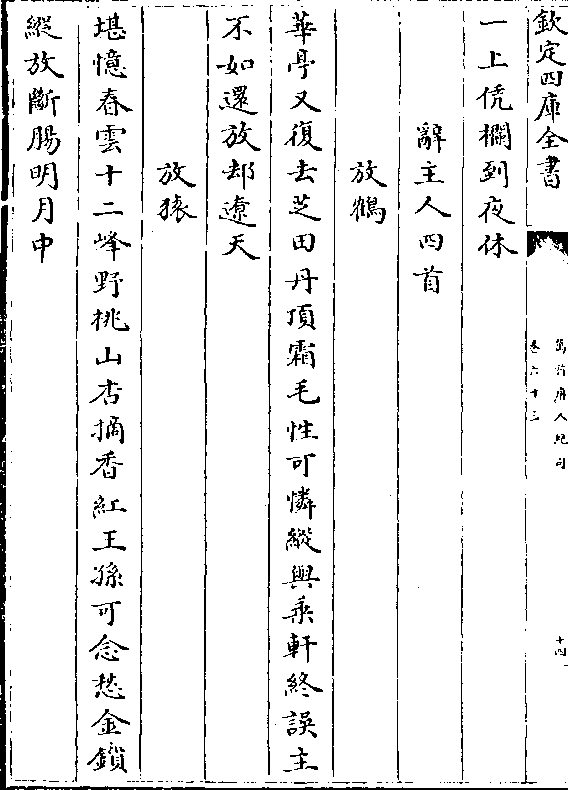 欽定四庫全書
萬首唐人絶句
卷六十三
十四
一上凭欄到夜休
辭主人四首
放鶴
華亭又復去芝田丹頂霜毛性可憐縱與乘軒終誤主
不如還放却遼天
放猿
堪憶春雲十二峰野桃山杏摘香紅王孫可念愁金鎖
縱放斷腸明月中